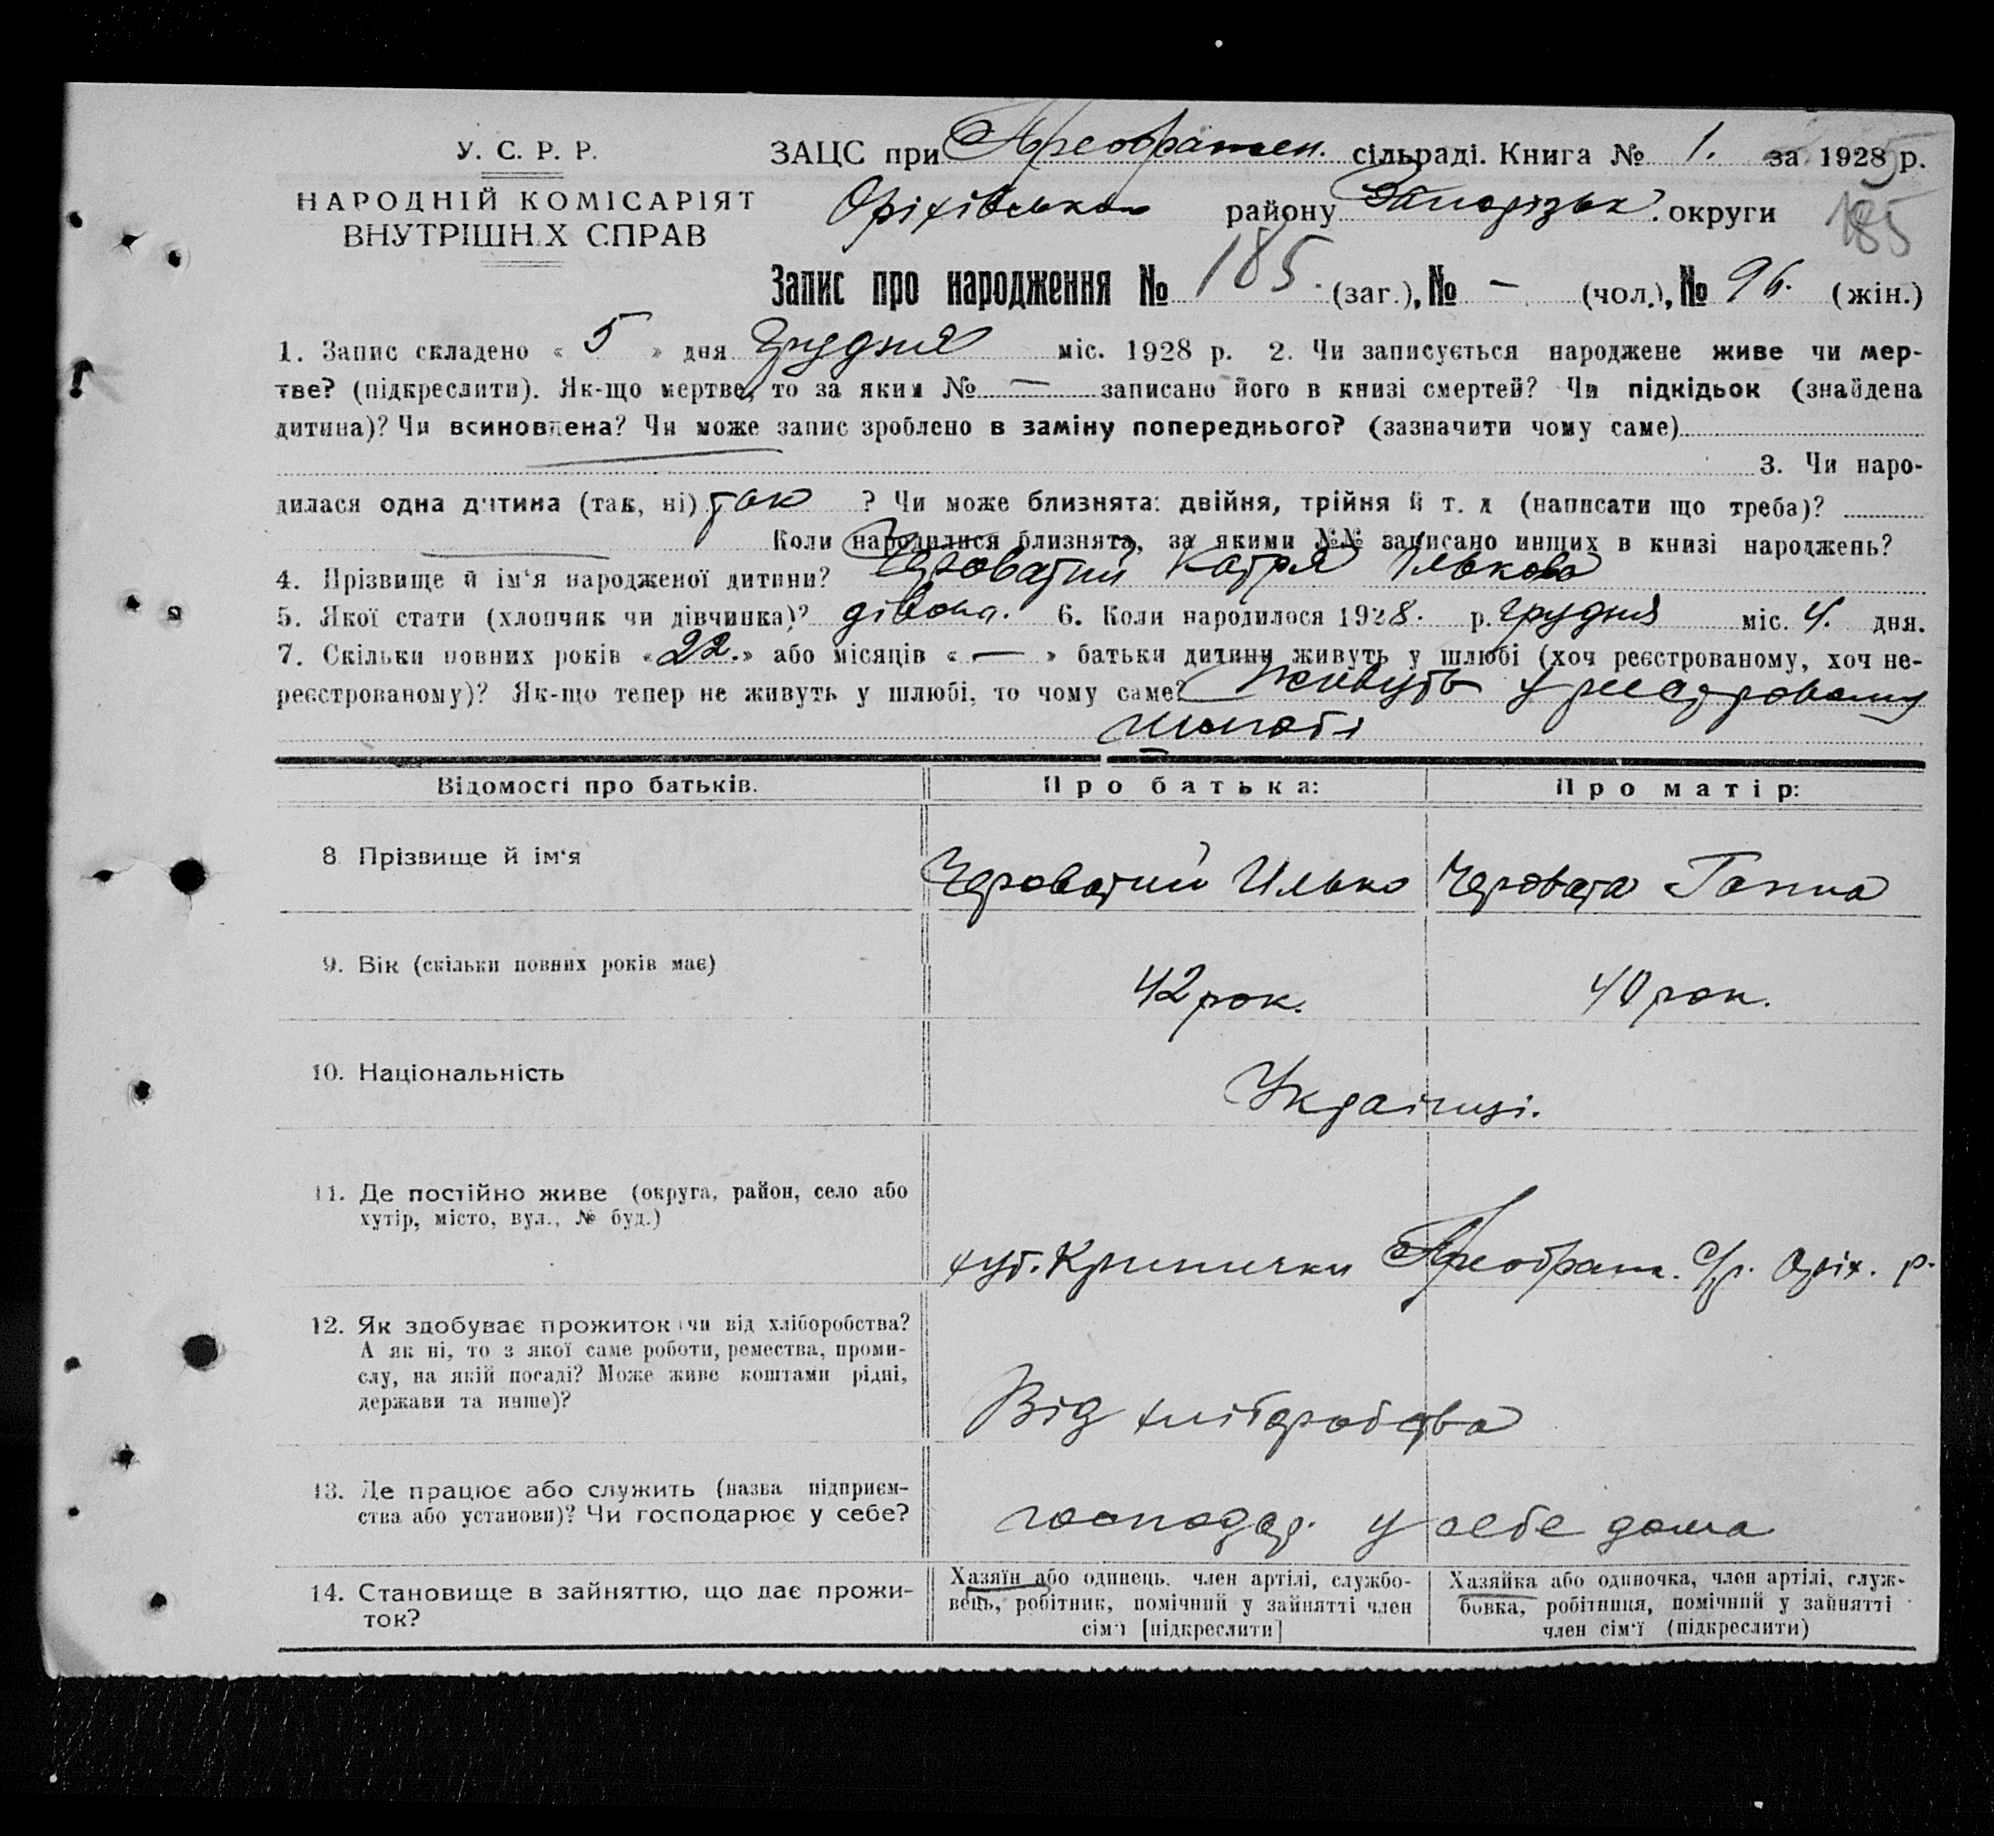 У. С. Р. Р.
НАРОДНІЙ КОМІСАРІЯТ
ВНУТРІШНІХ СПРАВ
ЗАЦС при Преображен. сільраді. Книга № 1. за 1928 р.
Оріхівськ района району Запорізьк. округи
185
Запис про народження № 185. (заг.), № — (чол.), № 96. (жін.)
1. Запис складено « 5 » дня грудня міс. 1928 р. 2. Чи записується народжене живе чи мер-
тве? (підкреслити). Як-що мертве, то за яким № — записано його в книзі смертей? Чи підкідьок (знайдена
дитина)? Чи всиновлена? Чи може запис зроблено в заміну попереднього? (зазначити чому саме)
3. Чи наро-
дилася одна дитина (так, ні) так ? Чи може близнята: двійня, трійня й т. д (написати що треба)?
Коли народилися близнята, за якими №№ записано инших в книзі народжень?
4. Прізвище й ім'я народженої дитини? Катря Ількова
5. Якої стати (хлопчик чи дівчинка)? дівоча. 6. Коли народилося 1928. р. грудня міс. 4. дня.
7. Скільки повних років « 22. » або місяців « — » батьки дитини живуть у шлюбі (хоч реєстрованому, хоч не-
реєстрованому)? Як-що тепер не живуть у шлюбі, то чому саме? Живуть у реєстрованому
шлюбі
Відомості про батьків.
Про батька:
Про матір:
8. Прізвище й ім'я
Илько
Ганна
9. Вік (скільки повних років має)
42 рок.
40 рок.
10. Національність
Українці.
11. Де постійно живе (округа, район, село або
хутір, місто, вул., № буд.)
хут. Кринички Преображ. с/р. Оріх. р.
12. Як здобуває прожиток: чи від хліборобства?
А як ні, то з якої саме роботи, ремества, проми-
слу, на якій посаді? Може живе коштами рідні,
держави та инше)?
Від хліборобства
13. Де працює або служить (назва підприєм-
ства або установи)? Чи господарює у себе?
господар. у себе дома
14. Становище в зайняттю, що дає прожи-
ток?
Хазяїн або одинець, член артілі, службо-
вець, робітник, помічний у зайнятті член
сім'ї [підкреслити]
Хазяйка або одиночка, член артілі, служ-
бовка, робітниця, помічний у зайнятті
член сім'ї (підкреслити)